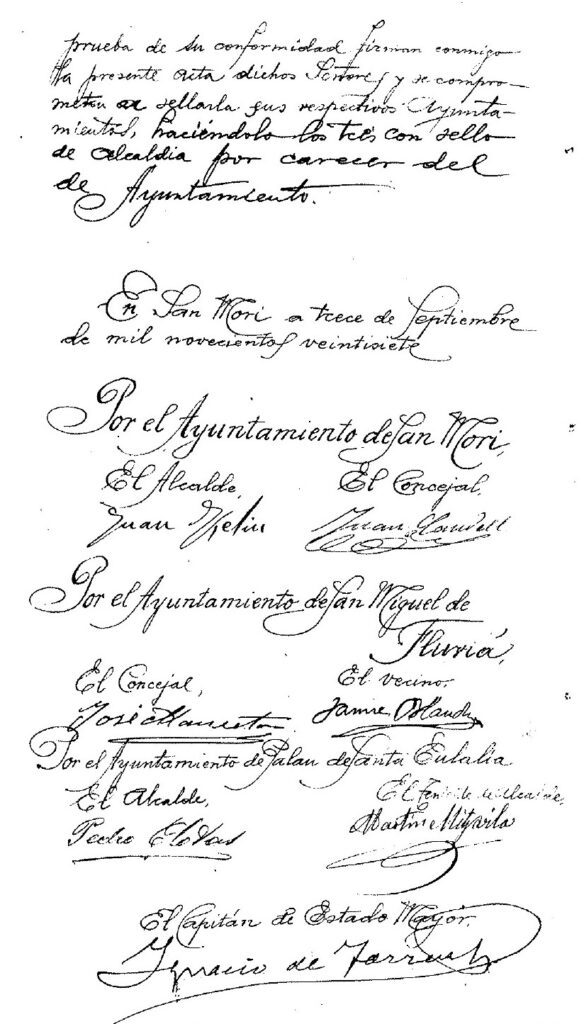 prueba de su conformidad firman conmigo
la presente acta dichos Señores y se compro-
meten a sellarla sus respectivos Ayunta-
mientos, haciéndolo los tres con sello
de Alcaldia por carecer del
de Ayuntamiento.
En San Mori a trece de Septiembre
de mil novecientos veintisiete
Por el Ayuntamiento de San Mori,
El Alcalde, El Concejal,
Juan Juan
Por el Ayuntamiento de San Miguel de
Fluviá,
El Concejal, El vecino,
José Jaime
Por el Ayuntamiento de Palau de Santa Eulalia
El Alcalde, El Teniente de Alcalde,
Pedro Martin Mitjavila
El Capitán de Estado Mayor,
Ignacio de